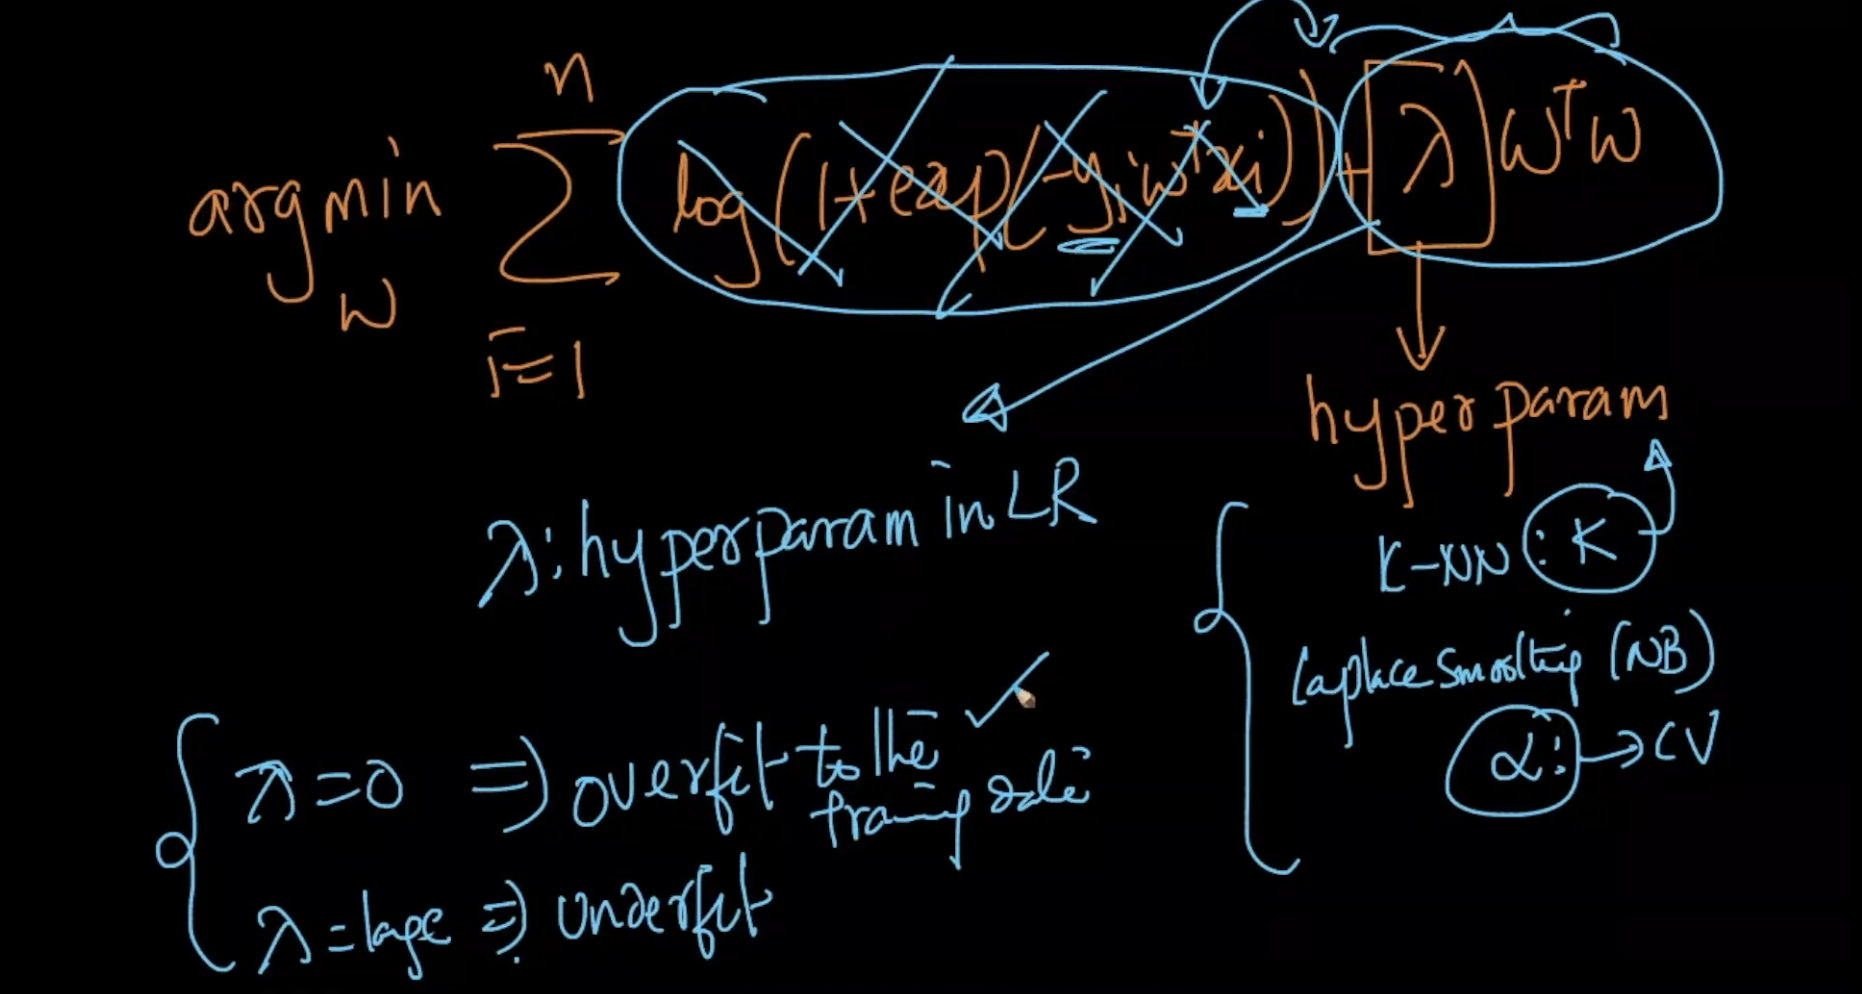 n
argmin Σ log(1+exp(-yi wᵀxi)) + λ wᵀw
w
i=1
hyperparam
λ: hyperparam in LR
K-NN : K
Laplace Smoothing (NB)
α: → CV
λ=0 ⇒ overfit to the
training data
λ=large ⇒ underfit